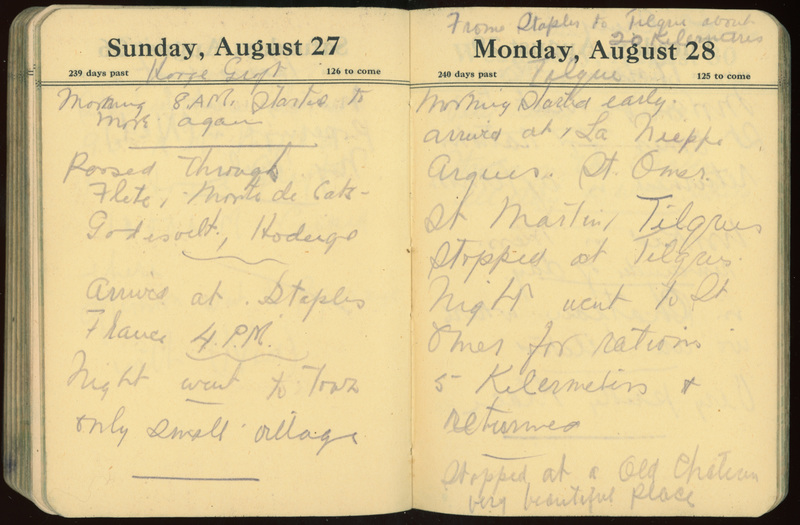 Sunday, August 27
239 days past
126 to come
Morning 8 A.M. Started to
move again
Passed through
Flete, Monte de Cats -
Godesvelt,
Arrived at Staples
France 4 P.M.
Night went to Town
only small village
From Staples to Tilques about
20 Kilermeters
Monday, August 28
240 days past
125 to come
Tilques
Morning Started early
arrived at, La Nieppe
Arques. St Omer.
St Martin, Tilques
Stopped at Tilques.
Night went to St
Omer for rations
5 Kilermeters &
returned
Stopped at a Old Chateau
very beautiful place